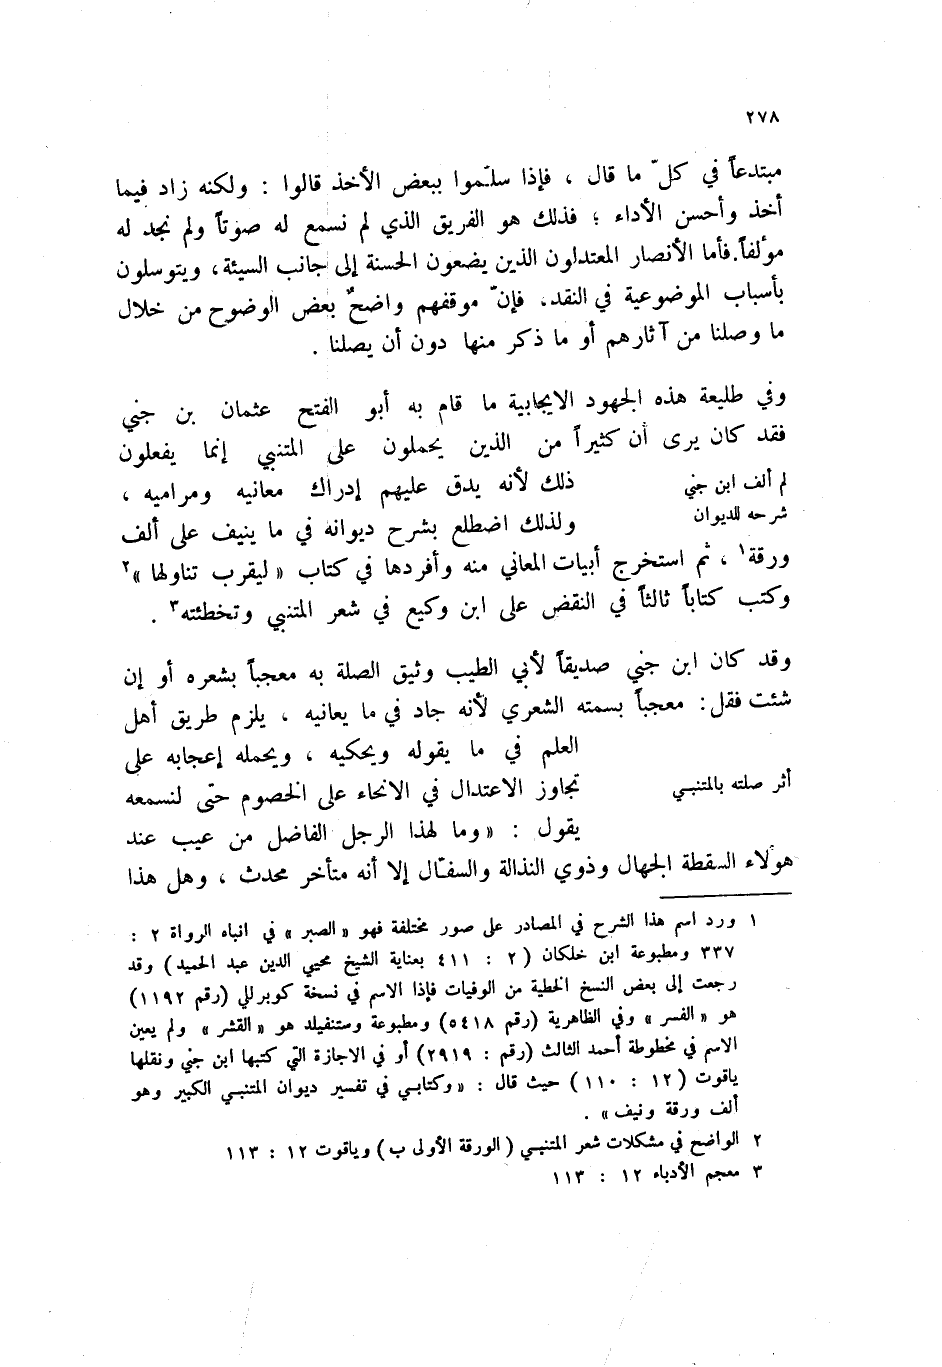 ٢٧٨
مبتدعاً في كلّ ما قال ، فإذا سلّموا ببعض الأخذ قالوا : ولكنه زاد فيما
أخذ وأحسن الأداء ؛ فذلك هو الفريق الذي لم نسمع له صوتاً ولم نجد له
مؤلفاً. فأما الأنصار المعتدلون الذين يضعون الحسنة إلى جانب السيئة ، ويتوسلون
بأسباب الموضوعية في النقد ، فإنّ موقفهم واضحٌ بعض الوضوح من خلال
ما وصلنا من آثارهم أو ما ذكر منها دون أن يصلنا .
وفي طليعة هذه الجهود الايجابية ما قام به أبو الفتح عثمان بن جني
فقد كان يرى أن كثيراً من الذين يحملون على المتنبي إنما يفعلون
لم ألف ابن جني
شرحه للديوان
ذلك لأنه يدق عليهم إدراك معانيه ومراميه ،
ولذلك اضطلع بشرح ديوانه في ما ينيف على ألف
ورقة١ ، ثم استخرج أبيات المعاني منه وأفردها في كتاب « ليقرب تناولها »٢
وكتب كتاباً ثالثاً في النقض على ابن وكيع في شعر المتنبي وتخطئته٣ .
وقد كان ابن جني صديقاً لأبي الطيب وثيق الصلة به معجباً بشعره أو إن
شئت فقل : معجباً بسمته الشعري لأنه جاد في ما يعانيه ، يلزم طريق أهل
العلم في ما يقوله ويحكيه ، ويحمله إعجابه على
أثر صلته بالمتنبي
تجاوز الاعتدال في الانحاء على الخصوم حتى لنسمعه
يقول : « وما لهذا الرجل الفاضل من عيب عند
هؤلاء السقطة الجهال وذوي النذالة والسفّال إلا أنه متأخر محدث ، وهل هذا
١ ورد اسم هذا الشرح في المصادر على صور مختلفة فهو « الصبر » في انباه الرواة ٢ :
٣٣٧ ومطبوعة ابن خلكان ( ٢ : ٤١١ بعناية الشيخ محيي الدين عبد الحميد ) وقد
رجعت إلى بعض النسخ الخطية من الوفيات فإذا الاسم في نسخة كوبرللي (رقم ١١٩٢)
هو « الفسر » وفي الظاهرية (رقم ٥٤١٨) ومطبوعة وستنفيلد هو « القشر » ولم يعين
الاسم في مخطوطة أحمد الثالث (رقم : ٢٩١٩) أو في الاجازة التي كتبها ابن جني ونقلها
ياقوت ( ١٢ : ١١٠ ) حيث قال : « وكتابي في تفسير ديوان المتنبي الكبير وهو
ألف ورقة ونيف » .
٢ الواضح في مشكلات شعر المتنبي ( الورقة الأولى ب ) وياقوت ١٢ : ١١٣
٣ معجم الأدباء ١٢ : ١١٣